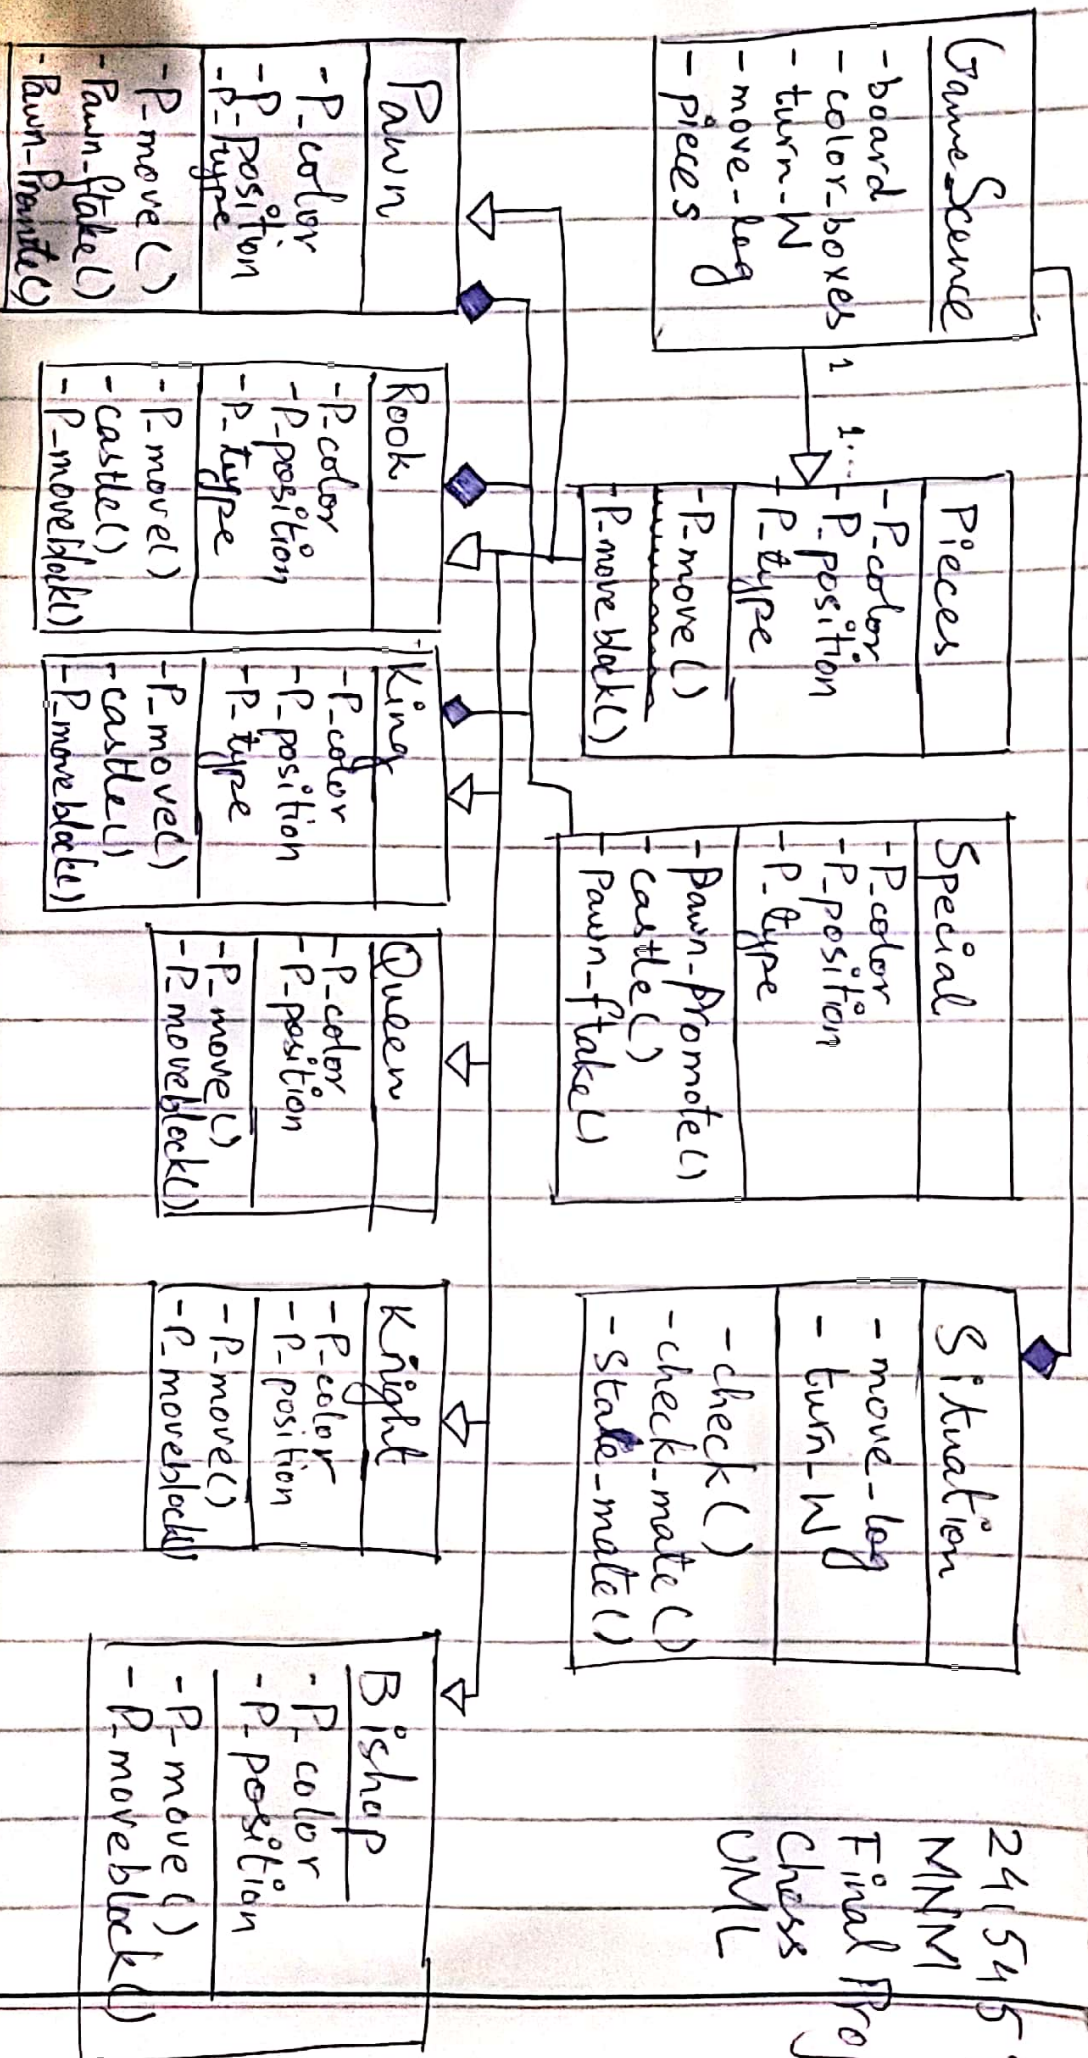 Game_Scence
- board
- color_boxes
- turn_W
- move_log
- pieces
1
1...
Pieces
- P_color
- P_position
- P_type
- P_move()
- P_moveblock()
Special
- P_color
- P_position
- P_type
- Pawn_Promote()
- castle()
- Pawn_ftake()
Situation
- move_log
- turn_W
- check()
- check_mate()
- Stale_mate()
241545
MNM
Final Proj
Chess
UML
Pawn
- P_color
- P_position
- P_type
- P_move()
- Pawn_ftake()
- Pawn_Promote()
Rook
- P_color
- P_position
- P_type
- P_move()
- castle()
- P_moveblock()
King
- P_color
- P_position
- P_type
- P_move()
- castle()
- P_moveblock()
Queen
- P_color
- P_position
- P_move()
- P_moveblock()
Knight
- P_color
- P_position
- P_move()
- P_moveblock()
Bishop
- P_color
- P_position
- P_move()
- P_moveblock()